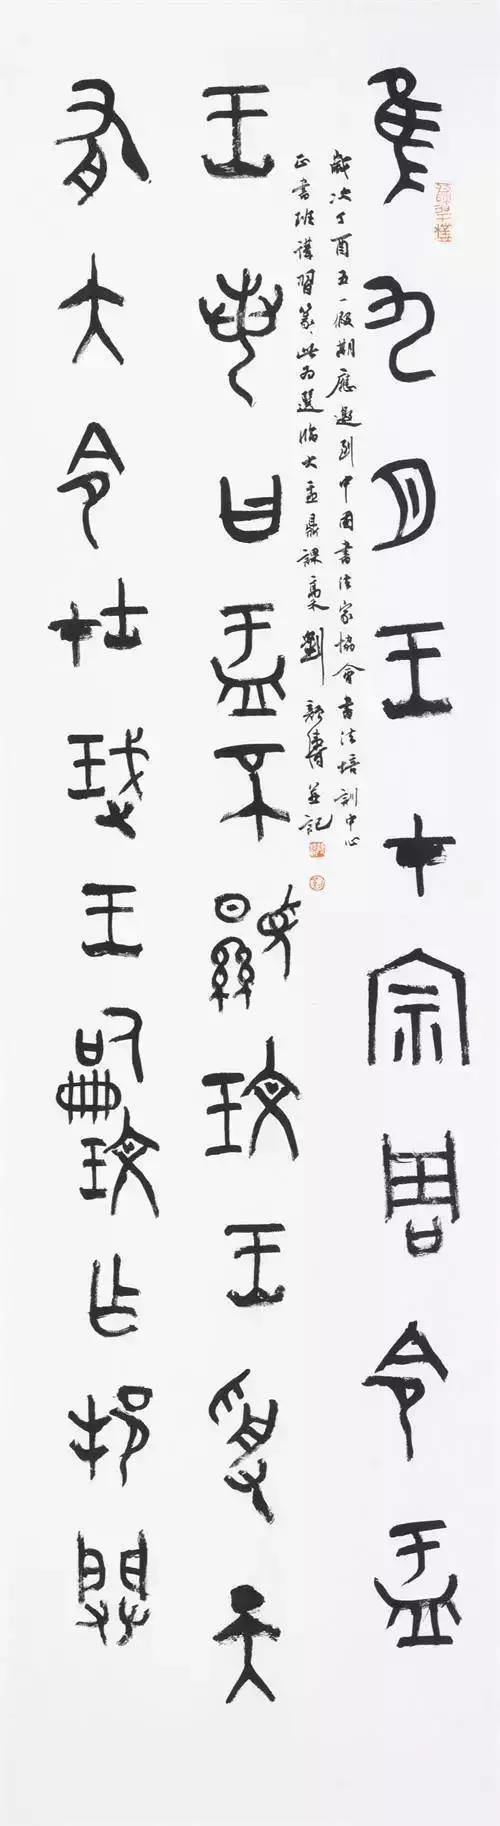 隹九月王才宗周令盂
王若曰盂不顯玟王受天
有大令在珷王嗣玟乍邦闢
歲次丁酉五一假期應邀到中國書法家協會書法培訓中心
正書班講習篆、此為選臨大盂鼎課稾 劉顏濤並記